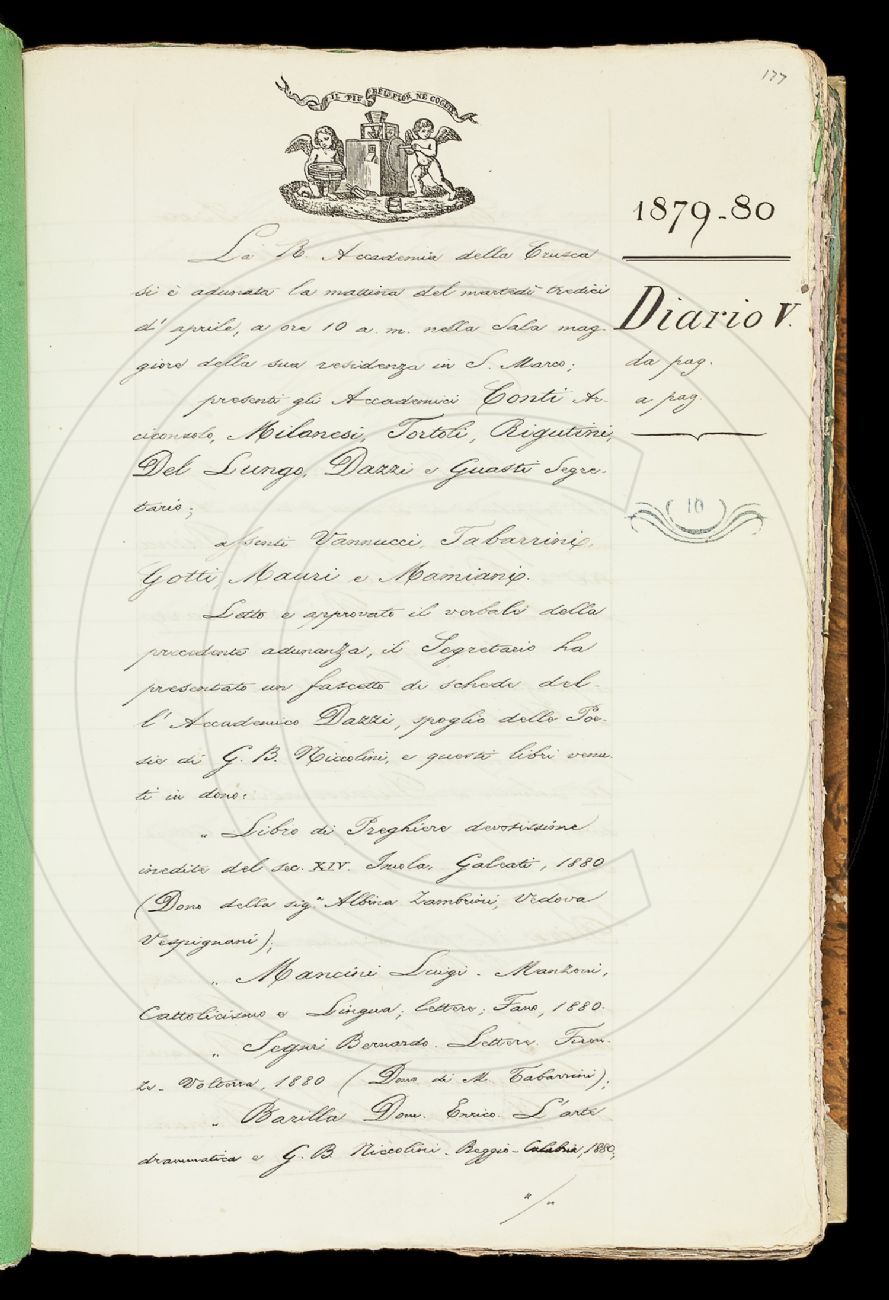 177
IL PIÙ BEL FIOR NE COGLIE
1879-80
Diario V.
da pag.
a pag.
10
La R. Accademia della Crusca
si è adunata la mattina del martedì tredici
d'aprile, a ore 10 a. m. nella Sala mag-
giore della sua residenza in S. Marco;
presenti gli Accademici Conti Ar-
ciconsolo, Milanesi, Tortoli, Rigutini,
Del Lungo, Dazzi e Guasti Segre-
tario;
assenti Vannucci, Tabarrini,
Gotti, Mauri e Mamiani.
Letto e approvato il verbale della
precedente adunanza, il Segretario ha
presentato un fascetto di schede del-
l'Accademico Dazzi, spoglio delle Poe-
sie di G. B. Niccolini, e questi libri venu-
ti in dono:
„ Libro di Preghiere devotissime
inedite del sec. XIV. Imola, Galeati, 1880
(Dono della sig.ª Albina Zambrini, Vedova
Vespignani);
„ Mancini Luigi. Manzoni,
Cattolicismo e Lingua; lettere; Fano, 1880.
„ Segni Bernardo. Lettere. Firen-
ze-Volterra, 1880 (Dono di M. Tabarrini);
„ Barilla Dom. Enrico. L'arte
drammatica e G. B. Niccolini. Reggio-Calabria, 1880,
"/"